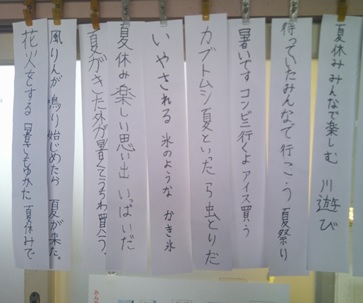 夏休み みんなで楽しむ 川遊び
待っていたみんなで行こう 夏祭り
暑いです コンビニ行くよ アイス買う
カブトムシ 夏といったら虫とりだ
いやされる 氷のような かき氷
夏休み 楽しい思い出 いっぱいだ
夏がきた外が暑くてうちわ買う。
風りんが鳴り始めたら 夏が来た。
花火をする 暑さ 夏休みで